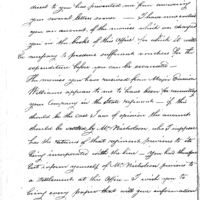 dicut to you has presented me from answering
your several letters sooner — I have inclosed
you an account of the monies which are charged
you in the books of this Office, for which it will
be necessary to produce sufficient vouchers for the
expenditure before you can be credited —
The monies you have received from Major Dennison
Williams appears to me to have been for recruiting
your Company in the State regiment — if this
should be the case I am of opinion the amount
should be settled by Mr. Nicholson, who I suppose
has the returns of that regiment previous to its
being incorporated with the line — You had therefore
best inform yourself of Mr. Nicholson previous to
a settlement at this Office — I wish you to
bring every proper that will give information